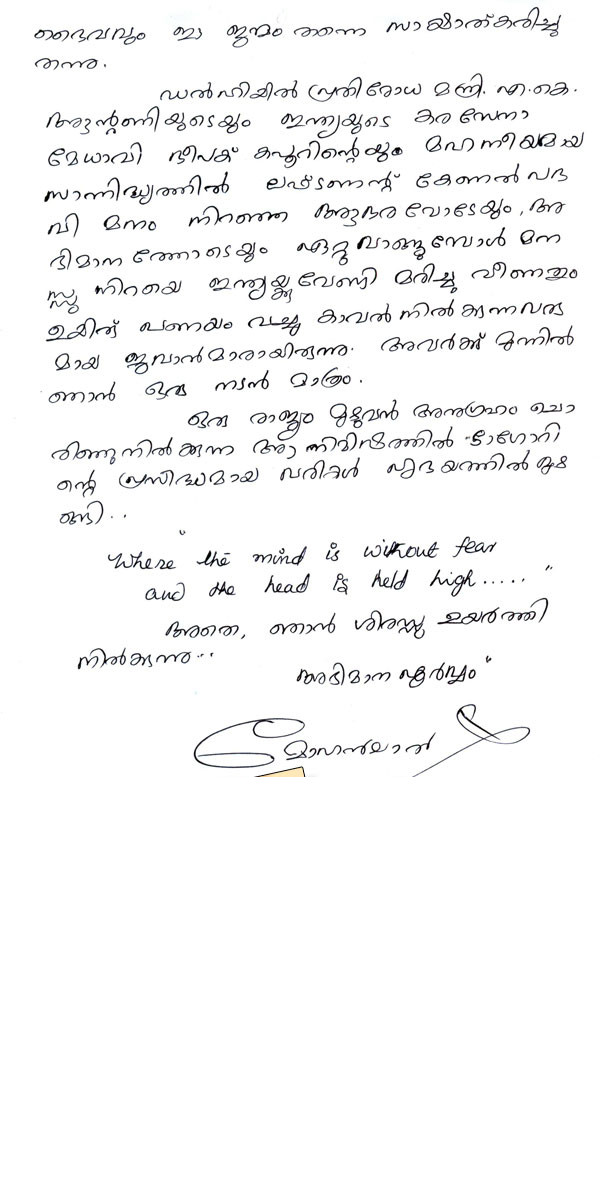 ദൈവവും ഈ ജന്മം തന്നെ സാക്ഷാത്കരിച്ചു
തന്നു.
ഡൽഹിയിൽ പ്രതിരോധ മന്ത്രി. എ.കെ.
ആന്റണിയുടെയും ഇന്ത്യയുടെ കരസേനാ
മേധാവി ദീപക് കപൂറിന്റെയും മഹനീയമായ
സാന്നിദ്ധ്യത്തിൽ ലഫ്ടണന്റ് കേണൽ പദ
വി മനം നിറഞ്ഞ ആദരവോടേയും, അ
ഭിമാനത്തോടെയും ഏറ്റുവാങ്ങുമ്പോൾ മന
സ്സു നിറയെ ഇന്ത്യയ്ക്കുവേണ്ടി മരിച്ചു വീണതും
ഉയിര് പണയം വച്ചു കാവൽ നിൽക്കുന്നവരു
മായ ജവാൻമാരായിരുന്നു. അവർക്ക് മുന്നിൽ
ഞാൻ ഒരു നടൻ മാത്രം.
ഒരു രാജ്യം മുഴുവൻ അനുഗ്രഹം ചൊ
രിഞ്ഞുനിൽക്കുന്ന ആ നിമിഷത്തിൽ ടാഗോറി
ന്റെ പ്രസിദ്ധമായ വരികൾ ഹൃദയത്തിൽ മുഴ
ങ്ങി..
"Where the mind is without fear
and the head is held high....."
അതെ, ഞാൻ ശിരസ്സു ഉയർത്തി
നിൽക്കുന്നു...
അഭിമാന പൂർവ്വം"
മോഹൻലാൽ